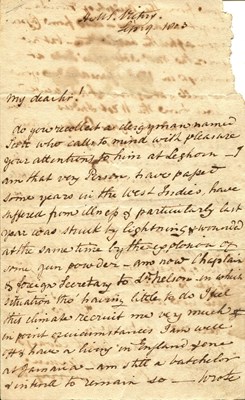 H.M.S. Victory.
Sep. 9 1803
My dear Sir!
Do you recollect a clergyman named
Scott who calls to mind with pleasure
your attentions to him at Leghorn – I
am that very Person, have passed
some years in the West Indies, have
suffered from illness & particularly last
year was struck by lightning & wounded
at the same time by the explosion of
some gun powder – am now Chaplain
& foreign Secretary to Ld. Nelson in which
situation tho' having little to do I feel
this climate recruit me very much &
in point of circumstances I am well
off & have a living in England & one
at Jamaica – am still a batchelor
& intend to remain so – wrote